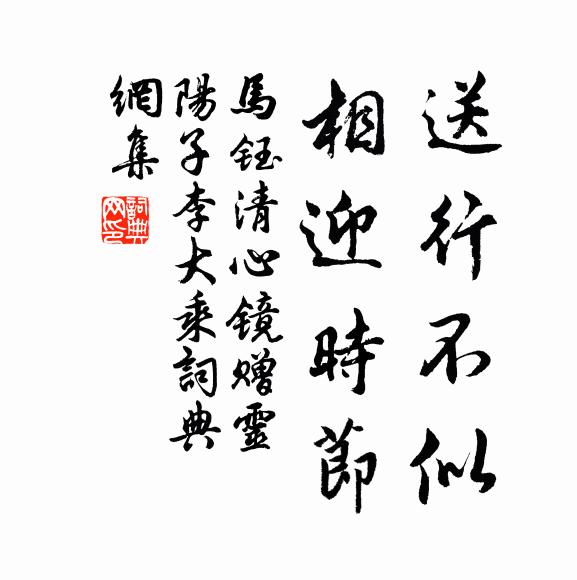 送行不似
相迎時節
馬鈺清心鏡贈靈
陽子李大乘詞典
網集
詞典
网印